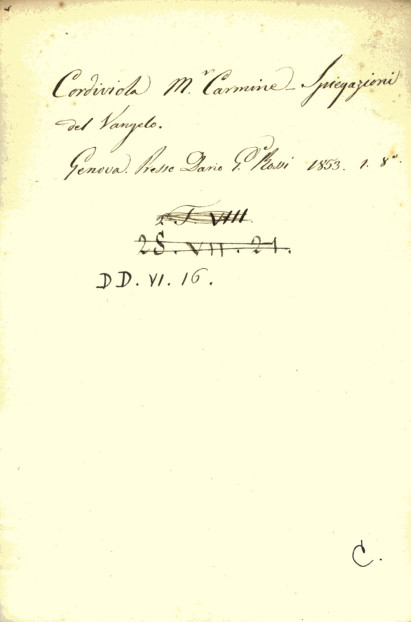 Cordiviola M.r Carmine - Spiegazioni
del Vangelo.
Genova. Presso Dario G.o Rossi 1853. 1. 8°.
2. T. VIII
2S. VII. 21.
DD. VI. 16.
C.